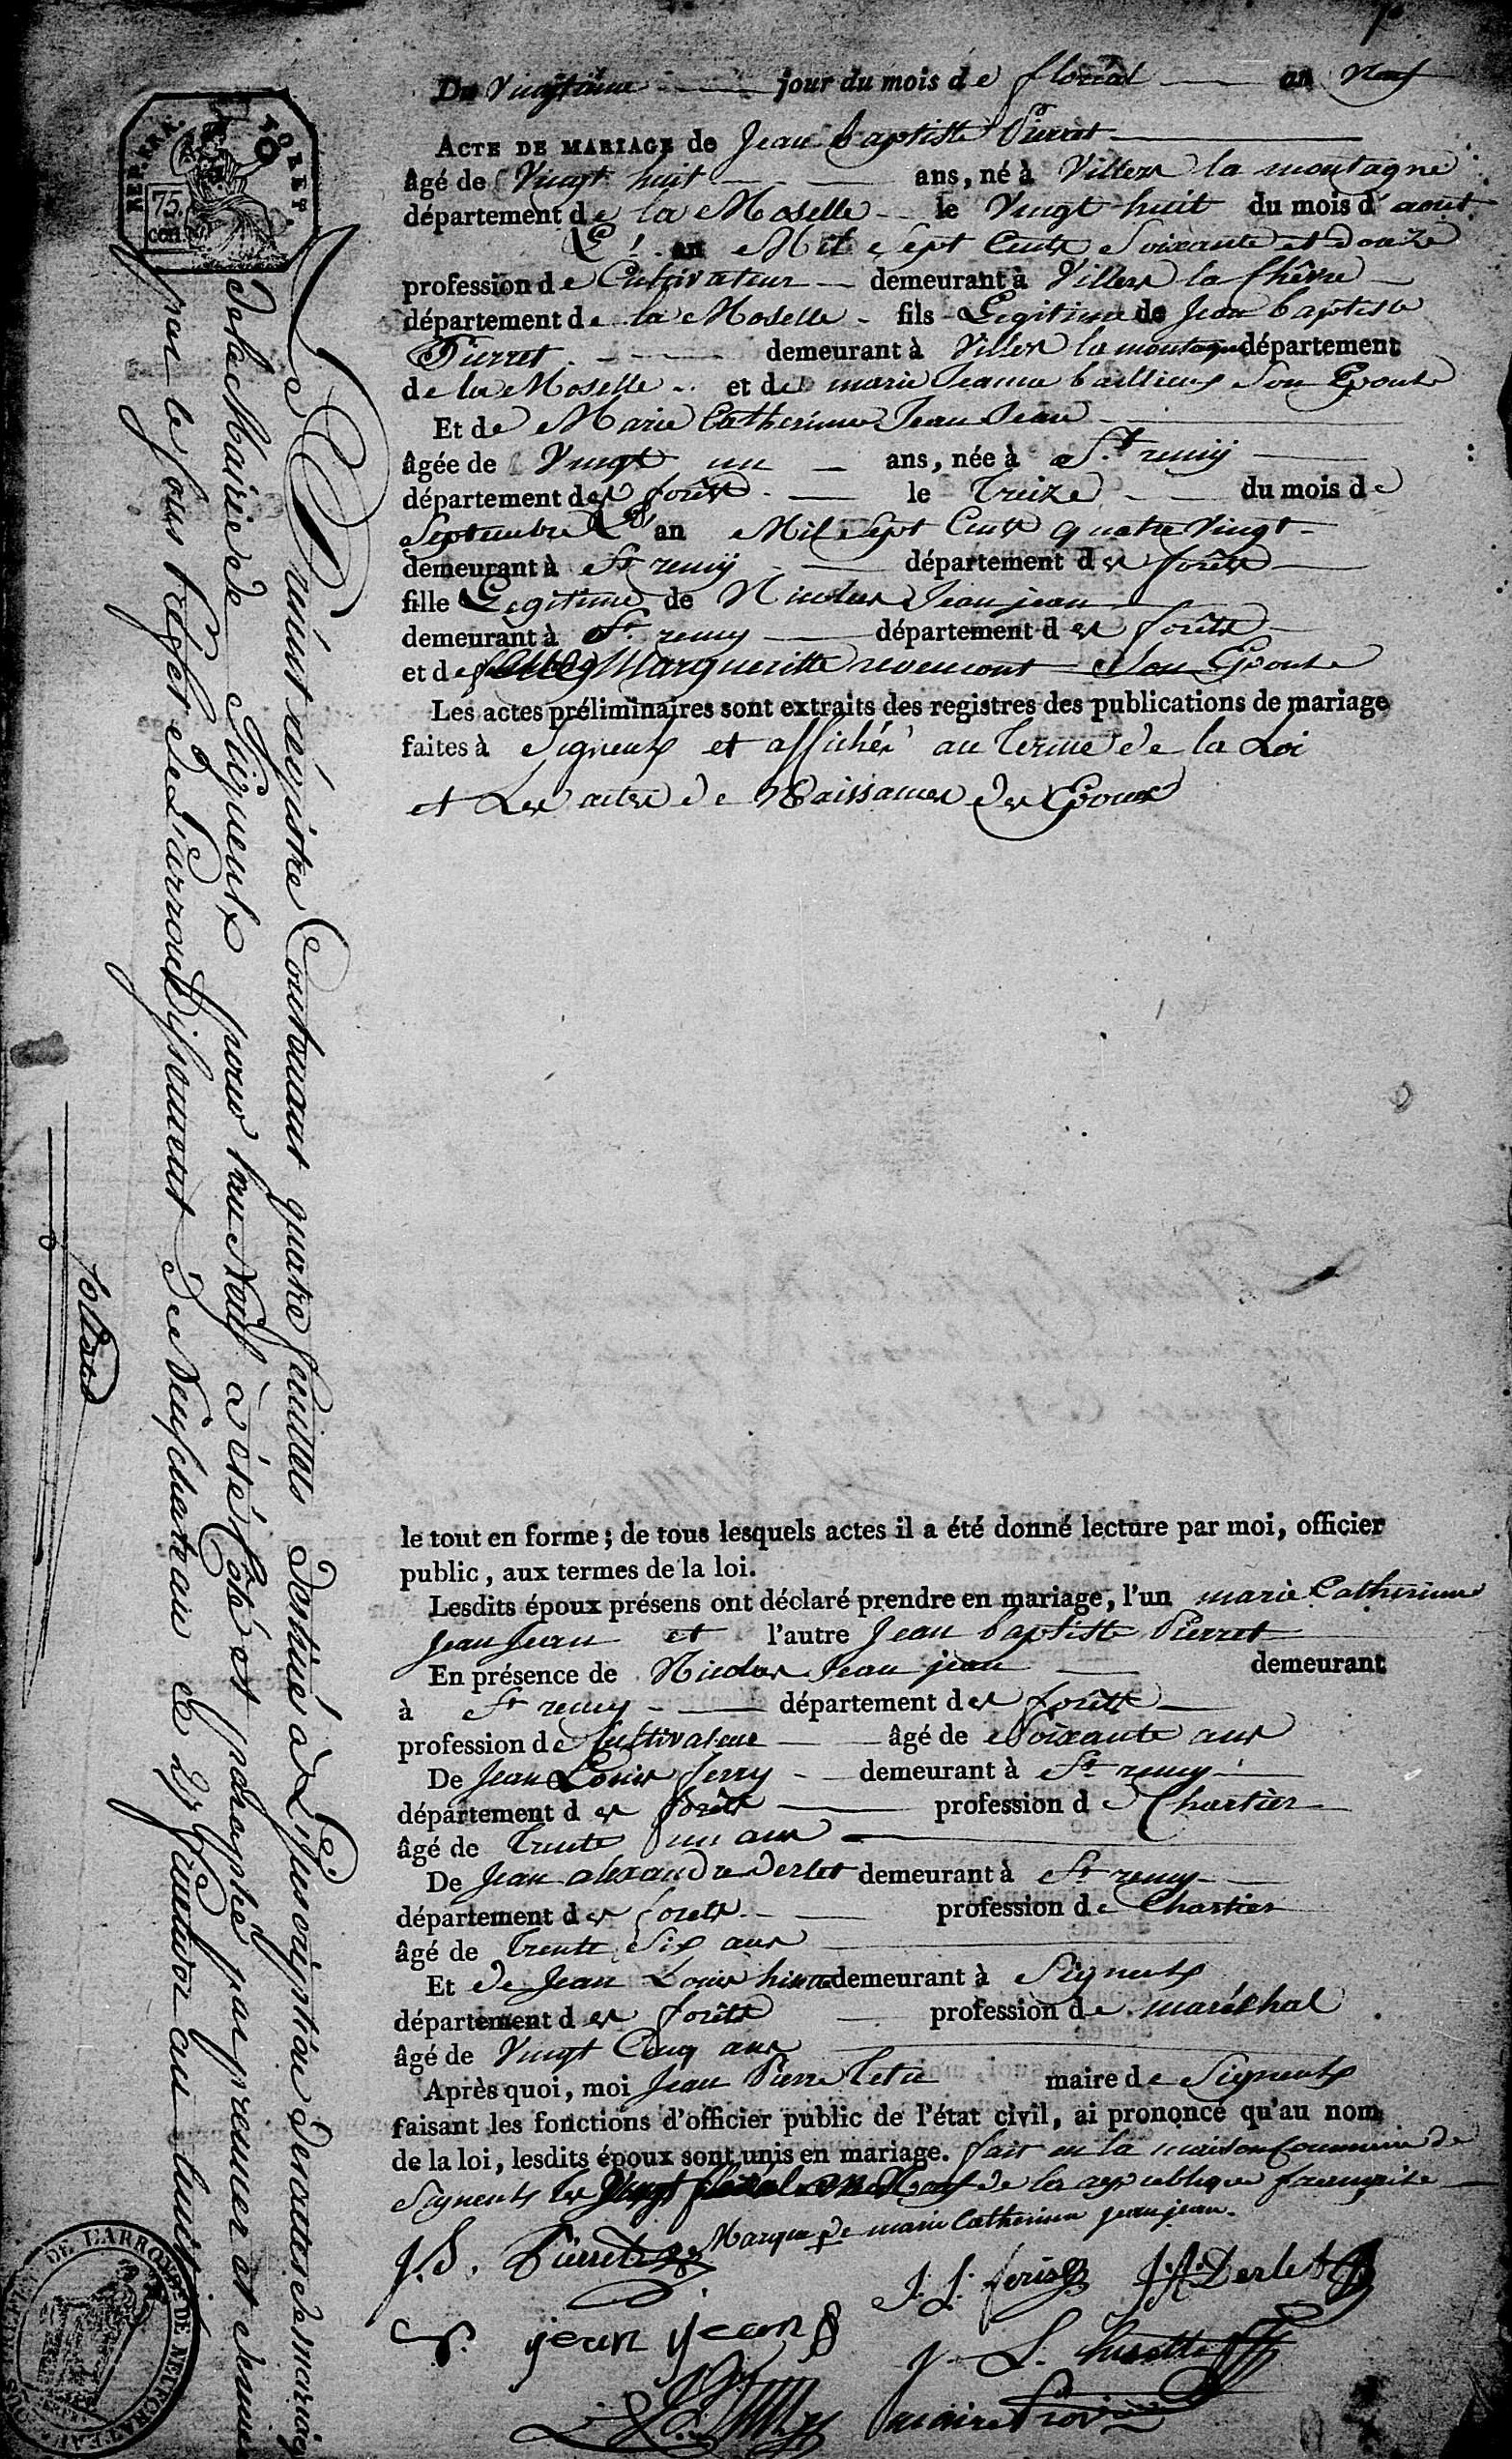 Du Vingtième jour du mois de floréal an Neuf
ACTE DE MARIAGE de Jean baptiste Pierret
âgé de Vingt huit ans, né à Villers la montagne
département de la Moselle le Vingt huit du mois d'aout
an Mil Sept Cents Soixante et douze
profession de Cultivateur demeurant à Villers la Chêvre
département de la Moselle fils Legitime de Jean baptiste
Pierret demeurant à Villers la montagne département
de la Moselle et de marie Jeanne bailleux Son Epouse
Et de Marie Catherine Jean Jean
âgée de Vingt un ans, née à St. remÿ
département des forêts le Treize du mois de
Septembre an Mil Sept Cents quatre Vingt
demeurant à St remÿ département des forêts
fille Legitime de Nicolas Jean jean
demeurant à St. remy département des forêts
et de Margueritte revemont Son Epouse
Les actes préliminaires sont extraits des registres des publications de mariage
faites à Signeulx et affichés au Terme de la Loi
et Les actes de Naissances des Epoux
le tout en forme ; de tous lesquels actes il a été donné lecture par moi, officier
public, aux termes de la loi.
Lesdits époux présens ont déclaré prendre en mariage, l'un marie Catherine
Jean Jean et l'autre Jean baptiste Pierret
En présence de Nicolas Jean jean demeurant
à St remy département des forêts
profession de Cultivateur âgé de Soixante ans
De Jean Louis ferry demeurant à St remy
département des forêts profession de Chartier
âgé de Trente un ans
De Jean alexandre Derlet demeurant à St remy
département des forets profession de Chartier
âgé de Trente Six ans
Et de Jean Louis demeurant à Signeulx
département des forêts profession de maréchal
âgé de Vingt Cinq ans
Après quoi, moi Jean Pierre maire de Signeulx
faisant les fonctions d'officier public de l'état civil, ai prononcé qu'au nom
de la loi, lesdits époux sont unis en mariage. fait en la maison Commune de
Signeulx les Vingt floréal an Neuf de la republique française
J. B. Pierret Marque de marie Catherine jean jean.
J. L. J. A. Derlet
N. jean jean
J. L.
maire
Le Présent régistre Contenant quatre feuillets Destiné à L'Inscription des actes de mariage
de la Mairie de Signeulx pour l'an Neuf à été Côté et paraphé par premier et dernier
par le Sous Préfet de L'arrondissement de Neufchateau le
REP. FRA.
75.
CEN.
DE L'ARROND. DE NEUFCHATEAU